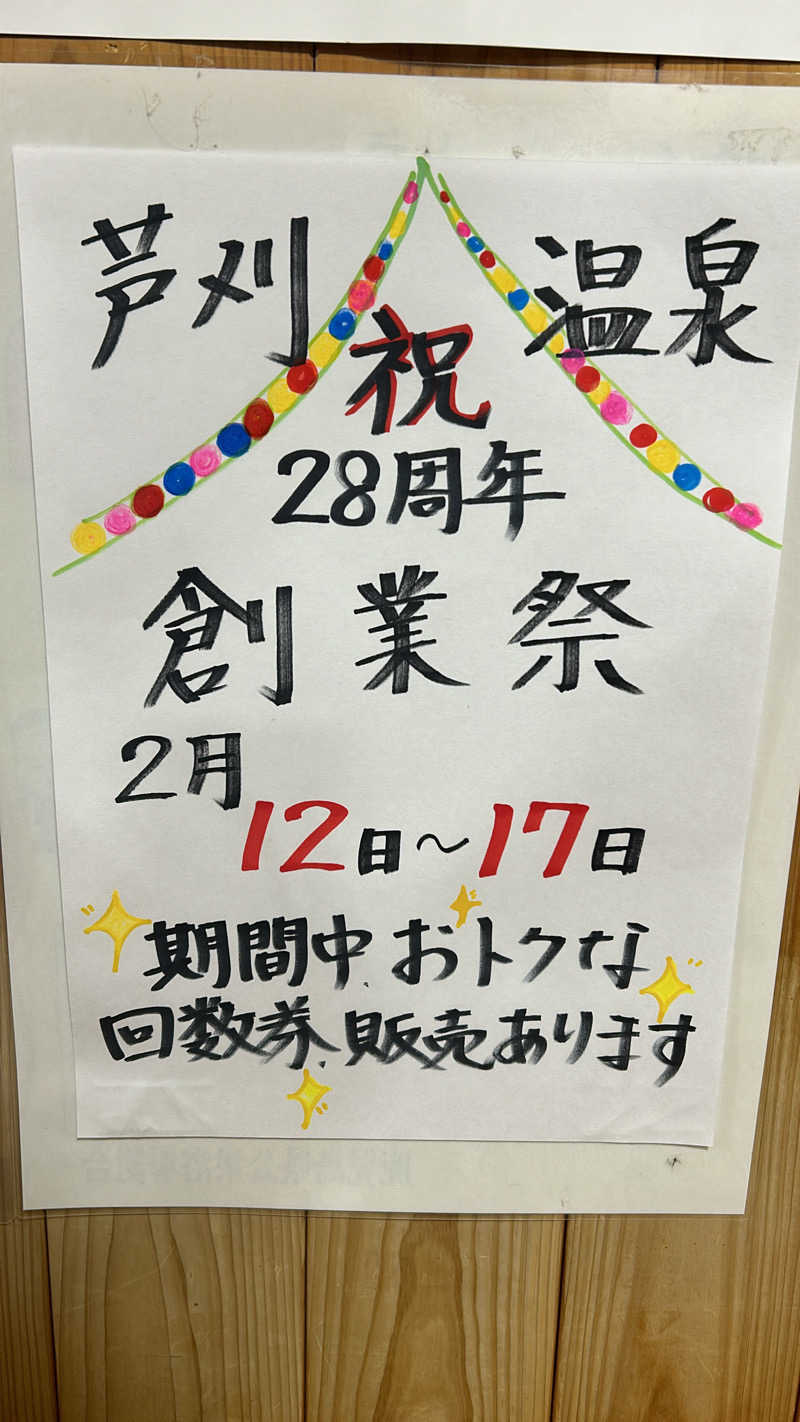 芦刈 温泉
祝
28周年
創業祭
2月
12日〜17日
期間中、おトクな
回数券、販売あります